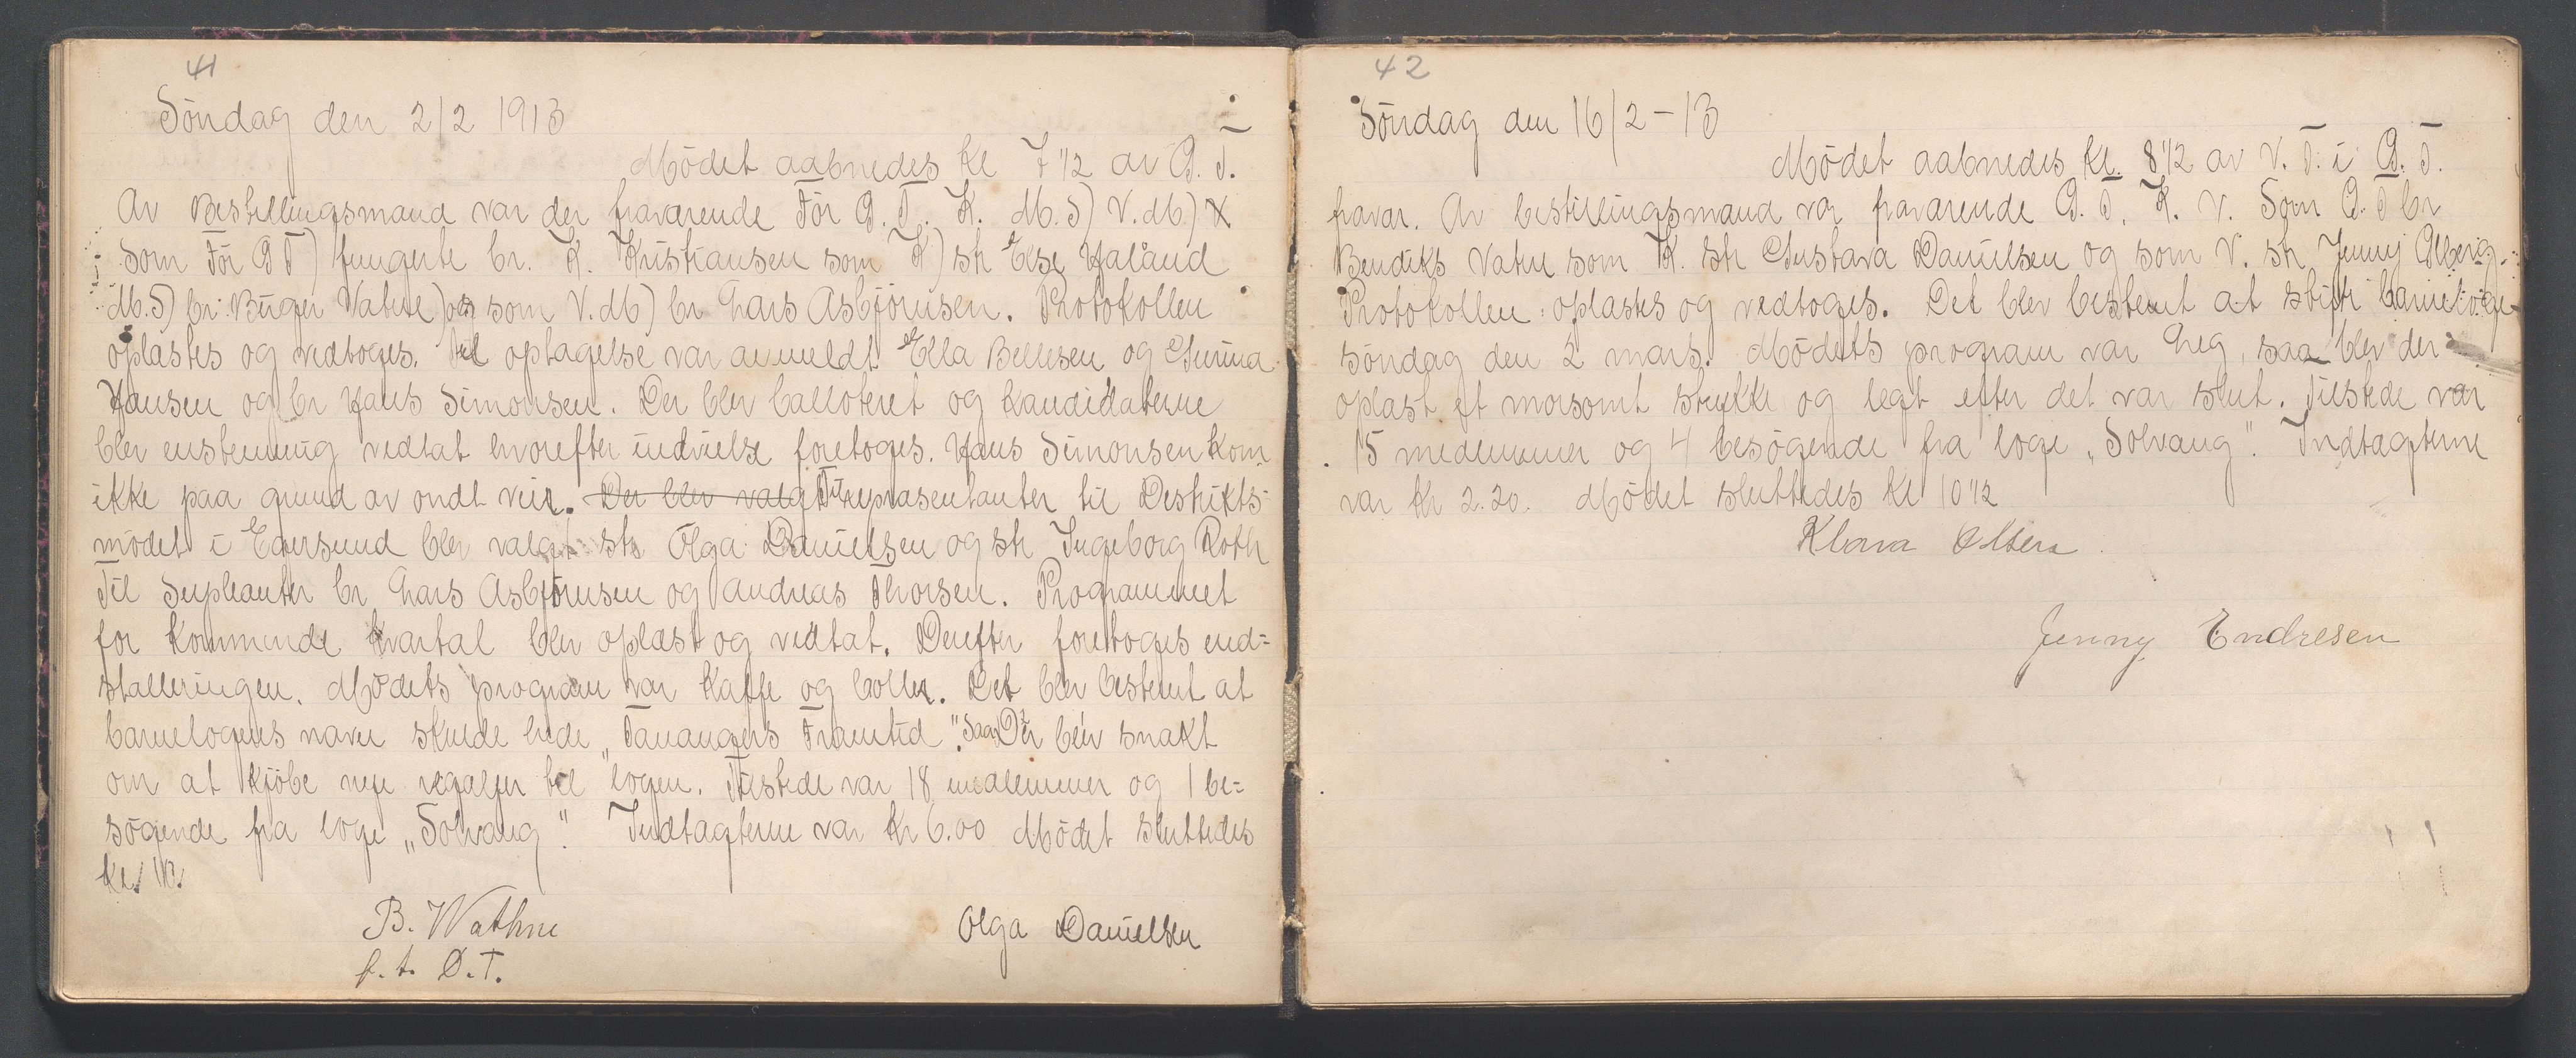 41
Söndag den 2/2 1913
Mödet aabnedes Kl 7 1/2 av Ö. T.
Av Bestillingsmænd var der fraværende For Ö. T. K. M.S) V.M)
som För Ö T) fungerte br. K. Kristiansen som K) str Else Haland
M.S) br. Birger Vatne) og som V.M) br Lars Asbjörnsen. Protokollen
oplæstes og vedtoges. Til optagelse var anmeldt Ella Bellesen og Gurina
Hansen og br Hans Simonsen. Der blev balloteret og Kandidaterne
blev enstemmig vedtat hvorefter indvielse foretoges. Hans Simonsen Kom
ikke paa grund av ondt veir. Der blev valgt Til repræsentanter til Destrikts-
mödet i Egersund blev valgt str Olga Danielsen og str Ingeborg Roth
Til Supleanter br Lars Asbjörnsen og Andreas Thorsen. Programmet
for Kommende Kvartal blev oplæst og vedtat. Derefter foretoges end=
stalleringen. Mödets program var Kaffe og boller. Det blev bestemt at
barnelogens navn skulde hede „Tanangers Framtid". Saa Der blev snakt
om at Kjöbe nye regaljer til logen. Tilstede var 18 medlemmer og 1 be=
sögende fra loge „Solvang". Indtægterne var Kr 6.00 Mödet sluttedes
Kl. 10.
B. Wathne
f. t. Ö.T.
Olga Danielsen
42
Söndag den 16/2-13
Mödet aabnedes Kl. 8 1/2 av V. T. i Ö. T.
fravær. Av bestillingsmænd var fraværende Ö. T. K. V. Som Ö. T br
Bendiks Vatne som K. str Gustava Danielsen og som V. str Jenny
Protokollen oplæstes og vedtoges. Det blev bestemt at stifte barneloge
söndag den 2 mars. Mödets program var Leg, saa blev der
oplæst et morsomt stykke og legt efter det var slut. Tilstede var
15 medlemmer og 4 besögende fra loge „Solvang". Indtægterne
var Kr 2.20. Mödet sluttedes Kl 10 1/2
Klara Olsen
Jenny Endresen